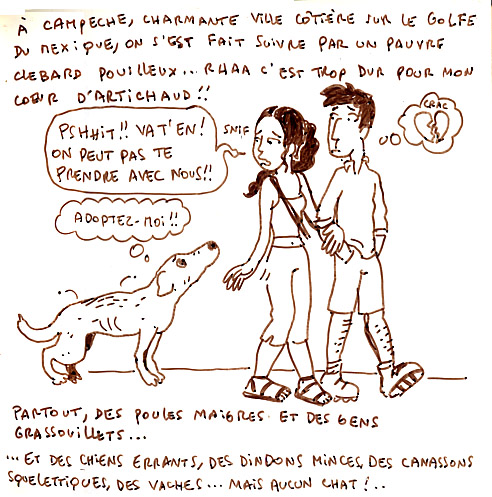 À CAMPECHE, CHARMANTE VILLE CÔTIÈRE SUR LE GOLFE
DU MEXIQUE, ON S'EST FAIT SUIVRE PAR UN PAUVRE
CLEBARD POUILLEUX... RHAA C'EST TROP DUR POUR MON
CŒUR D'ARTICHAUD!!
PSHHIT!! VA T'EN!
ON PEUT PAS TE
PRENDRE AVEC NOUS!!
SNIF
CRAC
ADOPTEZ-MOI!!
PARTOUT, DES POULES MAIGRES ET DES GENS
GRASSOUILLETS...
...ET DES CHIENS ERRANTS, DES DINDONS MINCES, DES CANASSONS
SQUELETTIQUES, DES VACHES... MAIS AUCUN CHAT!..